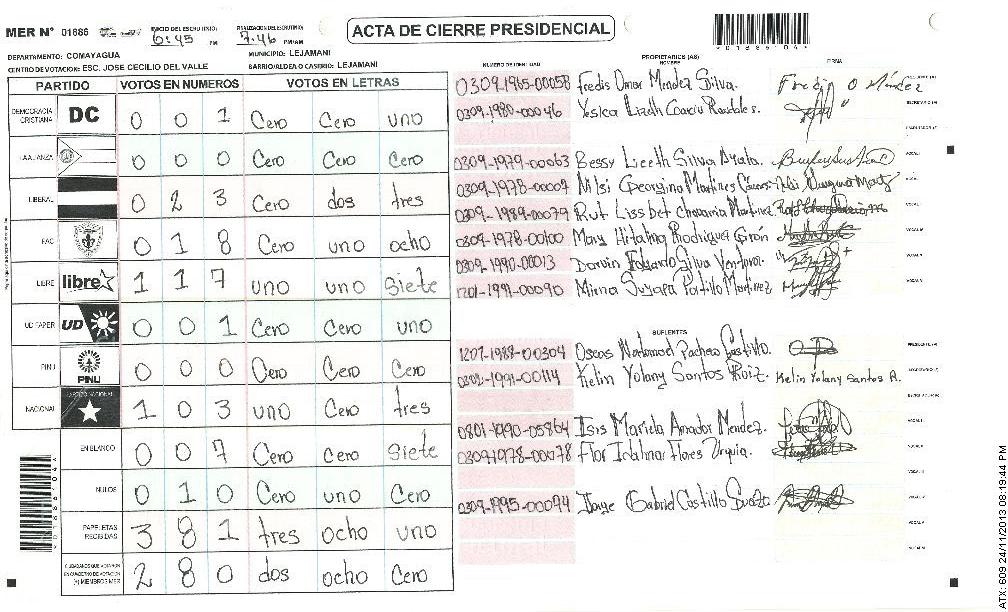 MER N° 01886
INICIO DEL ESCRUTINIO: 6:45 PM
FINALIZACION DEL ESCRUTINIO: 7:46 PM/AM
ACTA DE CIERRE PRESIDENCIAL
DEPARTAMENTO: COMAYAGUA
MUNICIPIO: LEJAMANI
CENTRO DE VOTACION: ESC. JOSE CECILIO DEL VALLE
BARRIO/ALDEA O CASERIO: LEJAMANI
PARTIDO VOTOS EN NUMEROS VOTOS EN LETRAS
DEMOCRACIA CRISTIANA DC 0 0 1 Cero Cero uno
LA ALIANZA 0 0 0 Cero Cero Cero
LIBERAL 0 2 3 Cero dos tres
FAC 0 1 8 Cero uno ocho
LIBRE libre 1 1 7 uno uno Siete
UD FAPER UD 0 0 1 Cero Cero uno
PINU PINU 0 0 0 Cero Cero Cero
NACIONAL PARTIDO NACIONAL 1 0 3 uno Cero tres
EN BLANCO 0 0 7 Cero Cero Siete
NULOS 0 1 0 Cero uno Cero
PAPELETAS RECIBIDAS 3 8 1 tres ocho uno
CIUDADANOS QUE VOTARON EN CUADERNO DE VOTACION (+) MIEMBROS MER 2 8 0 dos ocho Cero
NUMERO DE IDENTIDAD PROPIETARIOS (AS) NOMBRE FIRMA
0309-1965-00058 Fredis Omar Mendez Silva. Fredis O Méndez
0309-1980-00046 Yesica Lizeth
0309-1979-00063 Bessy Liceth Silva Ayala.
0309-1978-00009 Nilsi Georgina Martines
0309-1989-00079 Rut Lissbet Martinez
0309-1978-00100 Mary Hitalina Rodriguez Girón
0309-1990-00013 Darwin Eduardo Silva Ventura.
1201-1991-00090 Mirna Suyapa Portillo Martinez
SUPLENTES
1207-1988-00304 Oscar Pacheco Castillo.
0302-1991-00114 Kelin Yolany Santos Ruiz. Kelin Yolany Santos R.
0801-1990-05864 Isis Mariela Amador Mendez.
0309-1978-00078 Flor Idalma Flores Urquia.
0309-1995-00094 Jorge Gabriel Castillo Suazo
ATX: 609 24/11/2013 08:19:44 PM